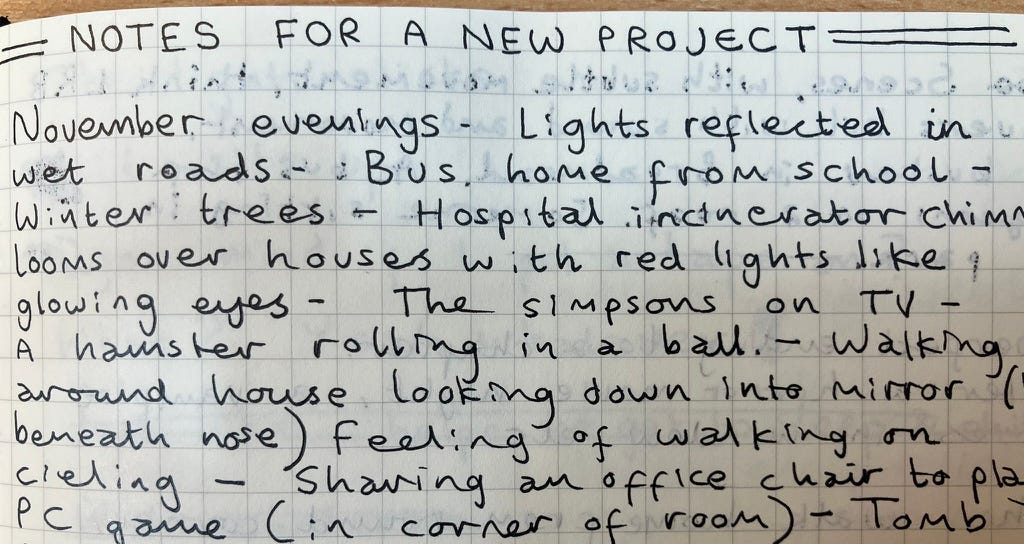 NOTES FOR A NEW PROJECT
November evenings - Lights reflected in
wet roads - Bus home from school -
Winter trees - Hospital incinerator chimn
looms over houses with red lights like
glowing eyes - The simpsons on TV -
A hamster rolling in a ball. - Walking
around house looking down into mirror (
beneath nose) feeling of walking on
cieling - Sharing an office chair to pla
PC game (in corner of room) - Tomb